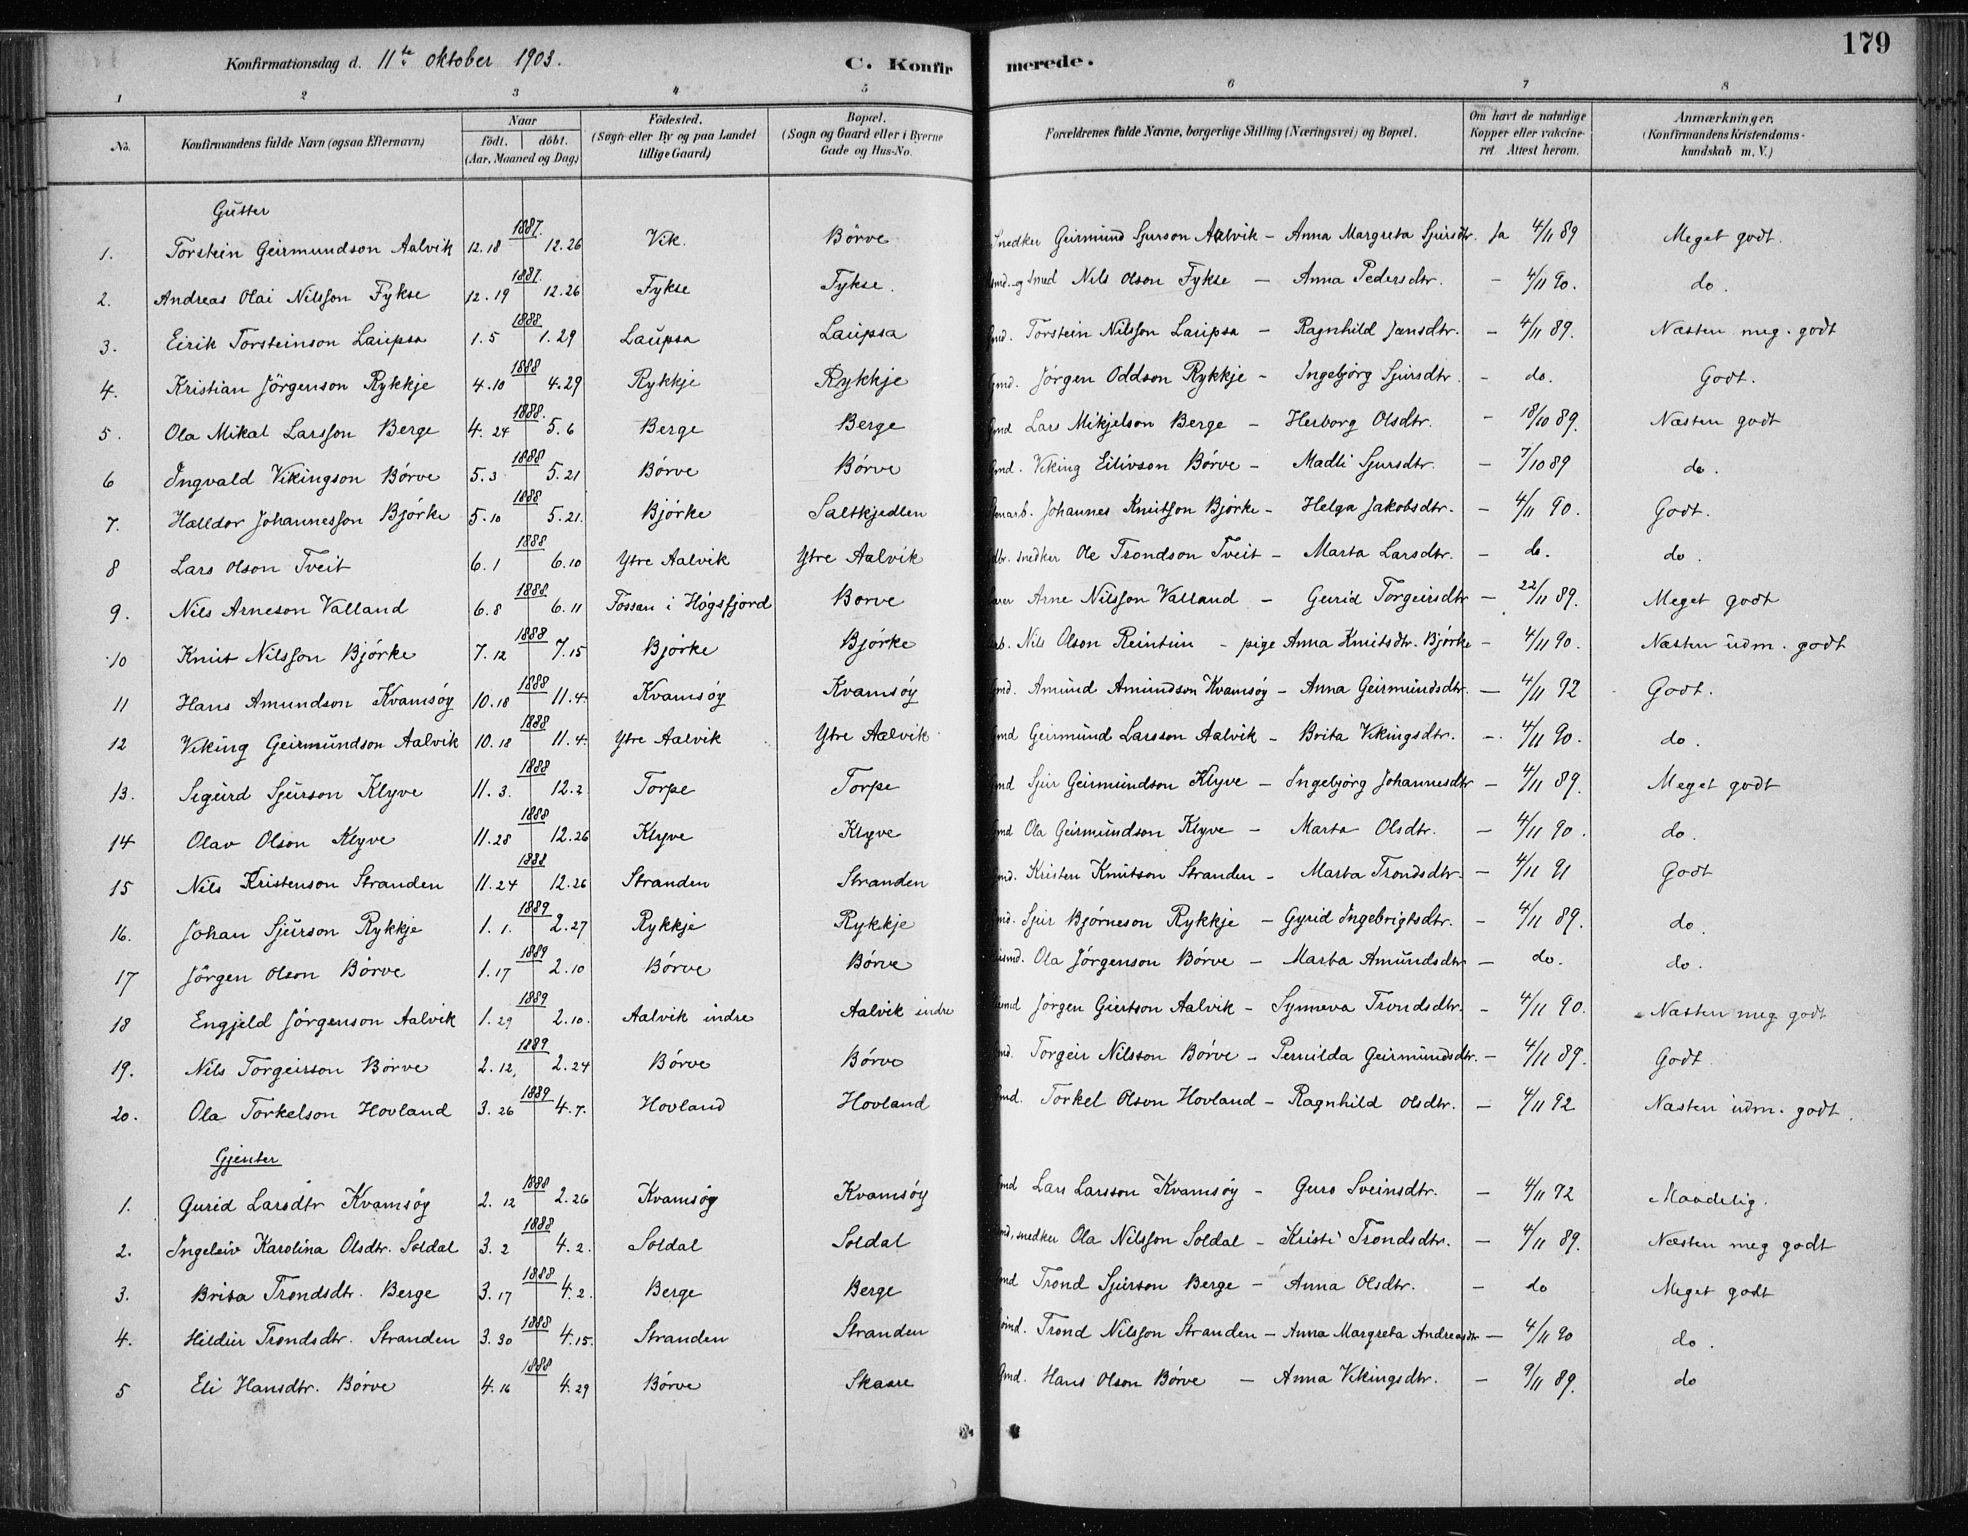 179
Konfirmationsdag d. 11te oktober 1903. C. Konfirmerede.
1 2 3 4 5 6 7 8
No. Konfirmandens fulde Navn (ogsaa Efternavn) Naar födt. döbt. (Aar, Maaned og Dag) Födested. (Sogn eller By og paa Landet tillige Gaard) Bopæl. (Sogn og Gaard eller i Byerne Gade og Hus-No. Forældrenes fulde Navne, borgerlige Stilling (Næringsvei) og Bopæl. Om havt de naturlige Kopper eller vakcineret. Attest herom. Anmærkninger. (Konfirmandens Kristendomskundskab m. V.)
Gutter
1. Torstein Geirmundson Aalvik 1887. 12.18 12.26 Vik. Börve Snedker Geirmund Sjurson Aalvik - Anna Margreta Sjursdtr. Ja 4/11 89 Meget godt.
2. Andreas Olai Nilsson Fykse 1887. 12.19 12.26 Fykse Fykse. og smed Nils Olson Fykse - Anna Pedersdtr. - 4/11 90. do.
3. Eirik Torsteinson Laupsa 1888 1.5 1.29 Laupsa Laupsa Gmd. Torstein Nilsson Laupsa - Ragnhild Jansdtr. - 4/11 89. Næsten meg. godt
4. Kristian Jörgenson Rykkje 1888 4.10 4.29 Rykkje Rykkje Gmd. Jörgen Oddson Rykkje - Ingebjörg Sjursdtr. - do. Godt.
5. Ola Mikal Larsson Berge 1888. 4.24 5.6 Berge Berge Gmd Lars Mikjelson Berge - Herborg Olsdtr. - 18/10 89. Næsten godt
6 Ingvald Vikingson Börve 1888 5.3 5.21 Börve Börve Gmd. Viking Eilivson Börve - Madli Sjursdtr. - 7/10 89 do.
7. Halldor Johannesson Björke 1888 5.10 5.21. Björke Saltkjedlen Johannes Knutson Björke - Helga Jakobsdtr. - 4/11 90. Godt.
8 Lars Olson Tveit 1888 6.1 6.10 Ytre Aalvik Ytre Aalvik snedker Ole Trondson Tveit - Marta Larsdtr. - do. do.
9. Nils Arneson Valland 1888 6.8 6.11 Fossan i Högsfjord Börve Arne Nilsson Valland - Gurid Torgeirsdtr - 22/11 89. Meget godt
10 Knut Nilsson Björke 1888 7.12 7.15 Björke Björke Nils Olson Reintun - pige Anna Knutsdtr. Björke - 4/11 90. Næsten udm. godt
11 Hans Amundson Kvamsöy 1888 10.18 11.4. Kvamsöy Kvamsöy Gmd. Amund Amundson Kvamsöy - Anna Geirmundsdtr. - 4/11 92 Godt.
12 Viking Geirmundson Aalvik 1888 10.18 11.4. Ytre Aalvik Ytre Aalvik Gmd Geirmund Larsson Aalvik - Brita Vikingsdtr. - 4/11 90. do.
13. Sigurd Sjurson Klyve 1888 11.3. 12.2 Torpe Torpe Gmd Sjur Geirmundson Klyve - Ingebjörg Johannesdtr - 4/11 89. Meget godt
14 Olav Olson Klyve 1888 11.28 12.26 Klyve Klyve Gmd Ola Geirmundson Klyve - Marta Olsdtr. - 4/11 90. do.
15 Nils Kristenson Stranden 1888 11.24 12.26 Stranden Stranden Gmd. Kristen Knutson Stranden - Marta Trondsdtr. - 4/11 91 Godt
16. Johan Sjurson Rykkje 1889 1.1. 2.27 Rykkje Rykkje Gmd. Sjur Björneson Rykkje - Gyrid Ingebrigtsdtr. - 4/11 89. do.
17 Jörgen Olson Börve 1889 1.17 2.10 Börve Börve Ola Jörgenson Börve - Marta Amundsdtr - do. do.
18 Engjeld Jörgenson Aalvik 1889 1.29 2.10. Aalvik indre Aalvik indre Jörgen Giertson Aalvik - Synneva Trondsdtr. - 4/11 90. Næsten meg godt
19. Nils Torgeirson Börve 1889 2.12, 2.24 Börve Börve Gmd. Torgeir Nilsson Börve - Pernilda Geirmundsdtr. - 4/11 89. Godt
20. Ola Torkelson Hovland 1889 3.26 4.7. Hovland Hovland Gmd. Torkel Olson Hovland - Ragnhild Olsdtr. - 4/11 92 Næsten udm. godt.
Gjenter
1. Gurid Larsdtr Kvamsöy 1888 2.12 2.26 Kvamsöy Kvamsöy Gmd Lars Larsson Kvamsöy - Guro Sveinsdtr. - 4/11 92 Maadelig.
2. Ingeleiv Karolina Olsdtr. Soldal 1888 3.2 4.2. Soldal Soldal Gmd, snedker Ola Nilsson Soldal - Kristi Trondsdtr. - 4/11 89. Næsten meg godt
3. Brita Trondsdtr. Berge 1888 3.17 4.2. Berge Berge Gmd Trond Sjurson Berge - Anna Olsdtr. - do Meget godt
4. Hildur Trondsdtr. Stranden 1888 3.30 4.15. Stranden Stranden Trond Nilsson Stranden - Anna Margreta Andreasdtr - 4/11 90 do.
5 Eli Hansdtr. Börve 1888 4.16 4.29 Börve Skaare Gmd. Hans Olson Börve - Anna Vikingsdtr. - 9/11 89. do